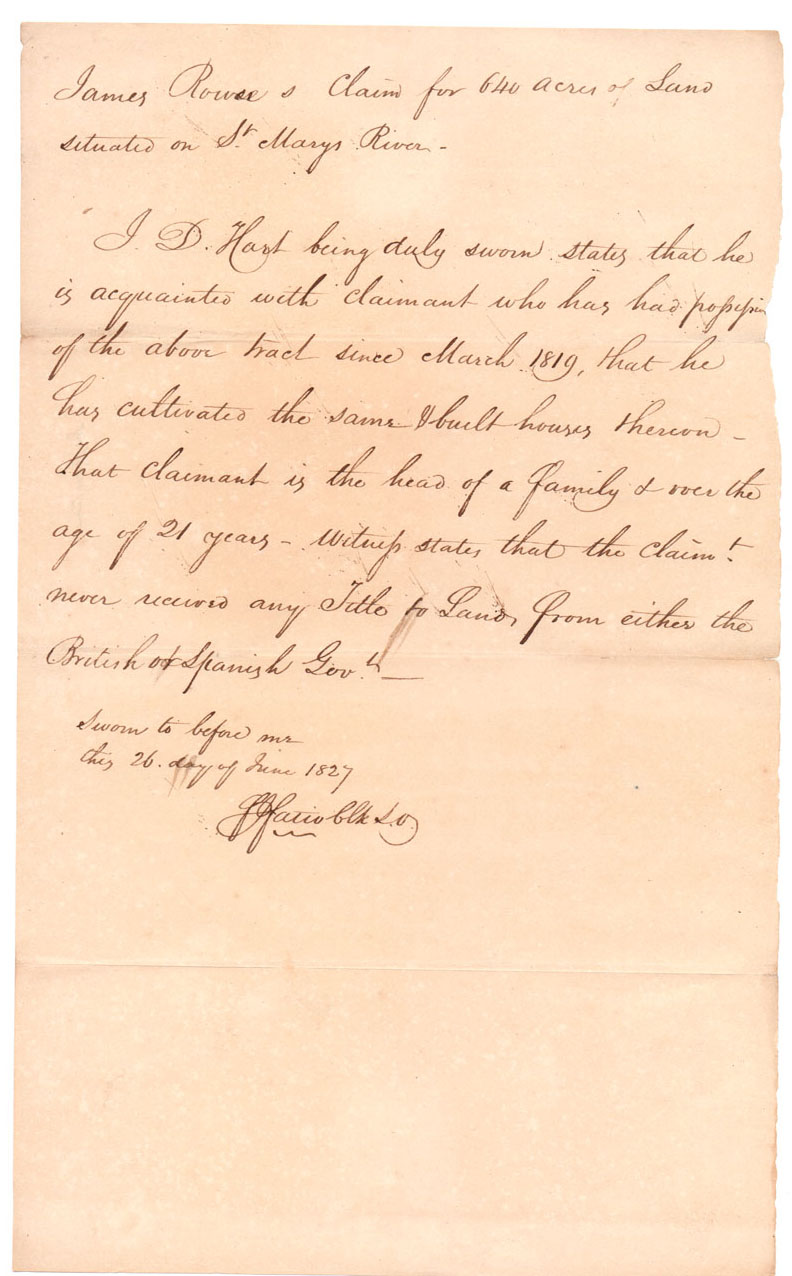 James Rowse s Claim for 640 acres of Land
situated on St. Marys River -
I. D. Hart being duly sworn states that he
is acquainted with claimant who has had possession
of the above tract since March 1819, that he
has cultivated the same & built houses thereon -
That claimant is the head of a family & over the
age of 21 years - Witness states that the claimt.
never received any Title to Lands from either the
British or Spanish Govts. -
Sworn to before me
this 26. day of June 1827
F J Fatio Clk L O